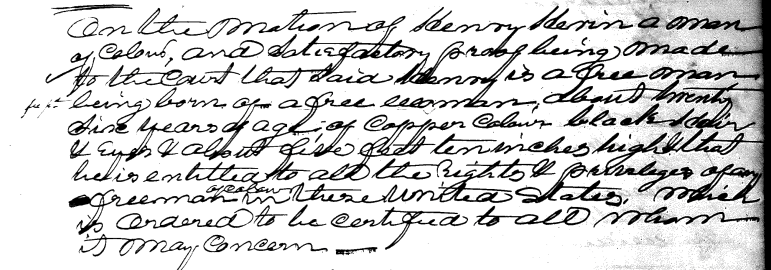 On the motion of Henry Hevin a man
of Colour, and satisfactory proof being made
to the Court that said Henry is a free man
being born of a free woman, about twenty
six years of age, of Copper Colour black Hair
& Eyes & about five feet ten inches high & that
he is entitled to all the Rights & privileges of any
freeman of colour in these United States, Which
is Ordered to be certified to all Whom
it May Concern